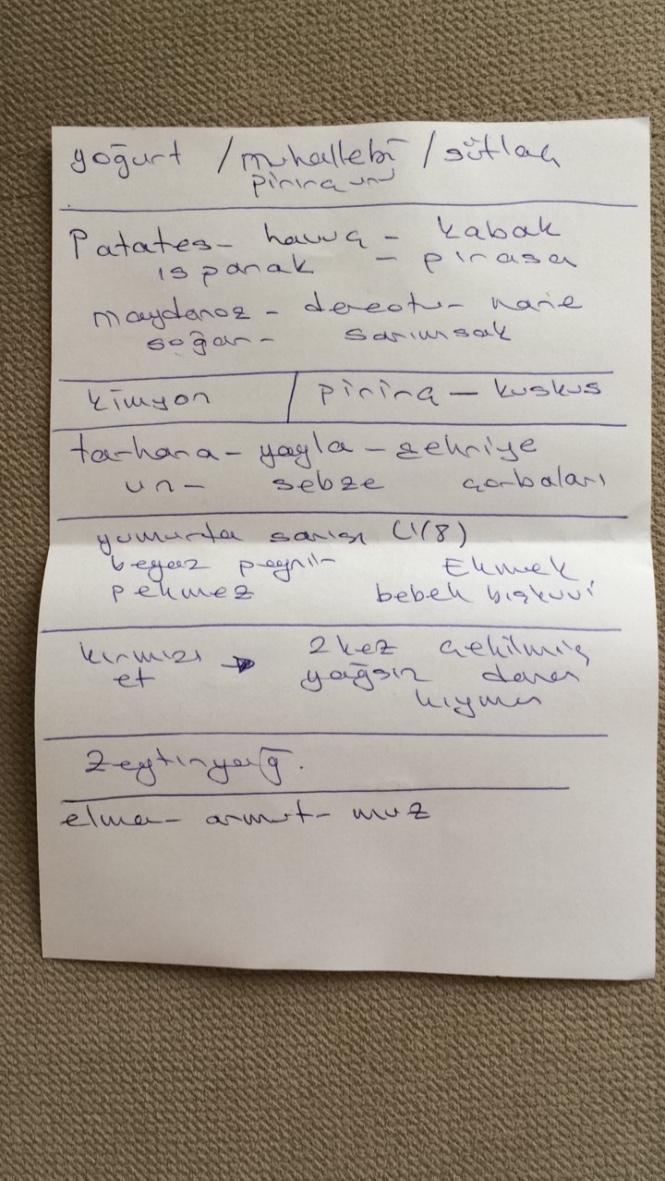 yoğurt / muhallebi / sütlaç
pirinç unu
Patates - havuç - kabak
ıspanak - pırasa
maydanoz - dereotu - nane
soğan - sarımsak
kimyon / pirinç - kuskus
tarhana - yayla - şehriye
un - sebze çorbaları
yumurta sarısı (1/8)
beyaz peynir Ekmek
pekmez bebek bisküvi
kırmızı → 2 kez çekilmiş
et yağsız dana
kıyma
zeytinyağ.
elma - armut - muz